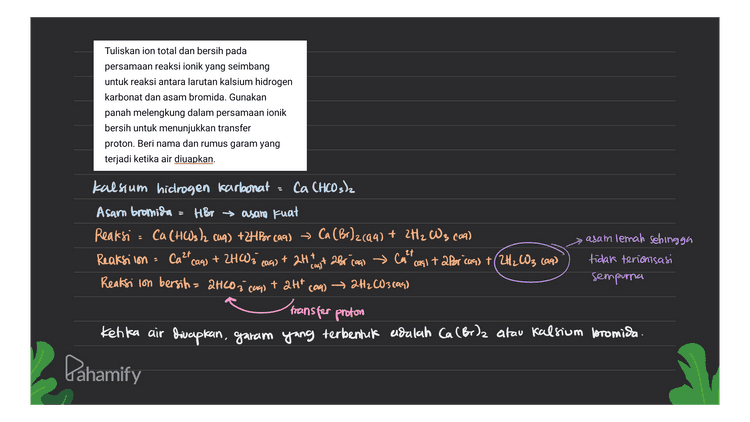 Tuliskan ion total dan bersih pada
persamaan reaksi ionik yang seimbang
untuk reaksi antara larutan kalsium hidrogen
karbonat dan asam bromida. Gunakan
panah melengkung dalam persamaan ionik
bersih untuk menunjukkan transfer
proton. Beri nama dan rumus garam yang
terjadi ketika air diuapkan.
Kalsium hidrogen karbonat = Ca(HCO₃)₂
Asam bromida = HBr → asam kuat
Reaksi = Ca(HCO₃)₂ (aq) + 2HBr (aq) → Ca(Br)₂ (aq) + 2H₂CO₃ (aq)
Reaksi ion = Ca²⁺ (aq) + 2HCO₃⁻ (aq) + 2H⁺ (aq) + 2Br⁻ (aq) → Ca²⁺ (aq) + 2Br⁻ (aq) + 2H₂CO₃ (aq)
asam lemah sehingga
tidak terionisasi
sempurna
Reaksi ion bersih = 2HCO₃⁻ (aq) + 2H⁺ (aq) → 2H₂CO₃ (aq)
transfer proton
Ketika air diuapkan, garam yang terbentuk adalah Ca(Br)₂ atau kalsium bromida.
Pahamify